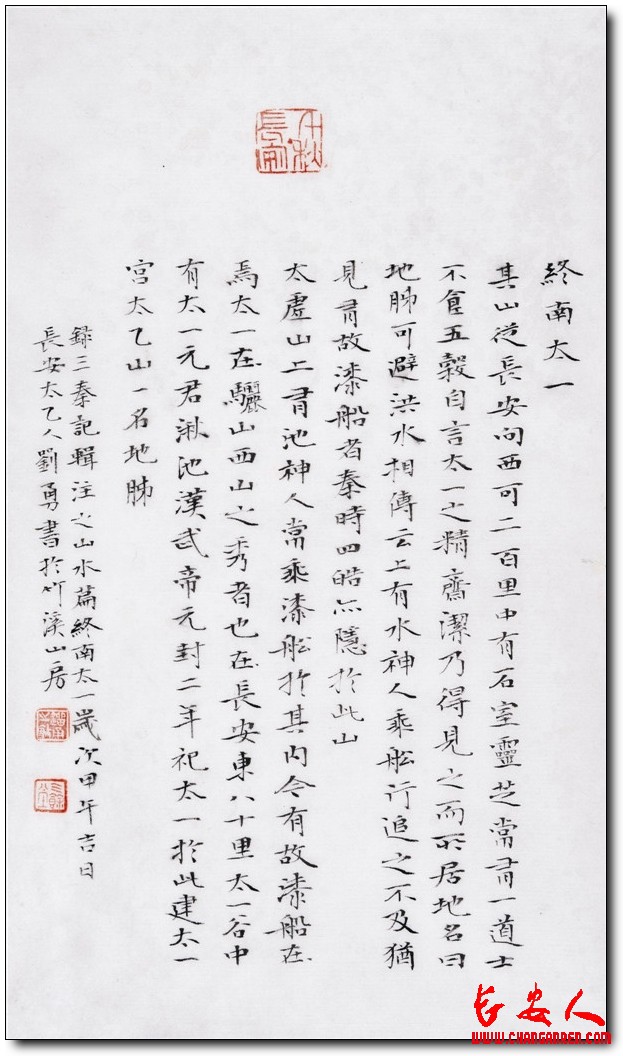 終南太一
其山從長安向西可二百里中有石室靈芝常有一道士
不食五穀自言太一之精齋潔乃得見之而所居地名曰
地肺可避洪水相傳云上有水神人乘船行追之不及猶
見有故漆船者秦時四皓亦隱於此山
太虛山上有池神人常乘漆船於其內今有故漆船在
焉太一在驪山西山之秀者也在長安東八十里太一谷中
有太一元君湫池漢武帝元封二年祀太一於此建太一
宮太乙山一名地肺
錄三秦記輯注之山水篇終南太一歲次甲午吉日
長安太乙人劉勇書於竹溪山房
千秋長安
长安人
www.changanren.com